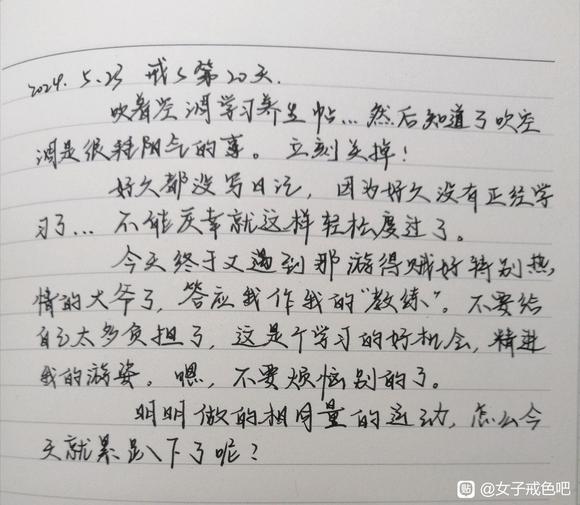 2024.5.23 戒s第20天.
吹着空调学习养生帖...然后知道了吹空
调是很耗阳气的事。立刻关掉!
好久都没写日记,因为好久没有正经学
习了...不能庆幸就这样轻松度过了。
今天终于又遇到那游得贼好特别热
情的大爷了,答应我作我的“教练”。不要给
自己太多负担了,这是个学习的好机会,精进
我的游姿。嗯,不要烦恼别的了。
明明做的相同量的运动,怎么今
天就累趴下了呢?
贴 @女子戒色吧